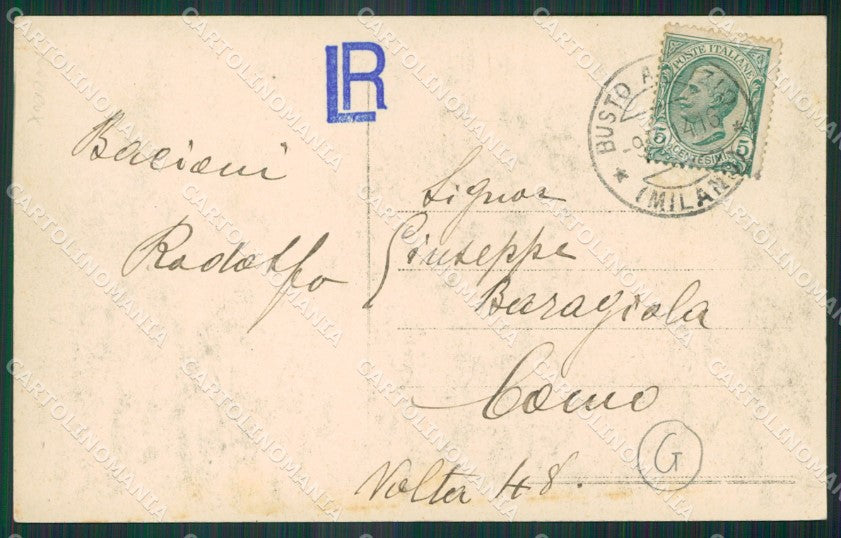 LR
POSTE ITALIANE
5 CENTESIMI 5
BUSTO
(MILANO)
Bacioni
Rodolfo
Signor
Giuseppe
Baragiola
Como
Volta 48.
G
CARTOLINOMANIA